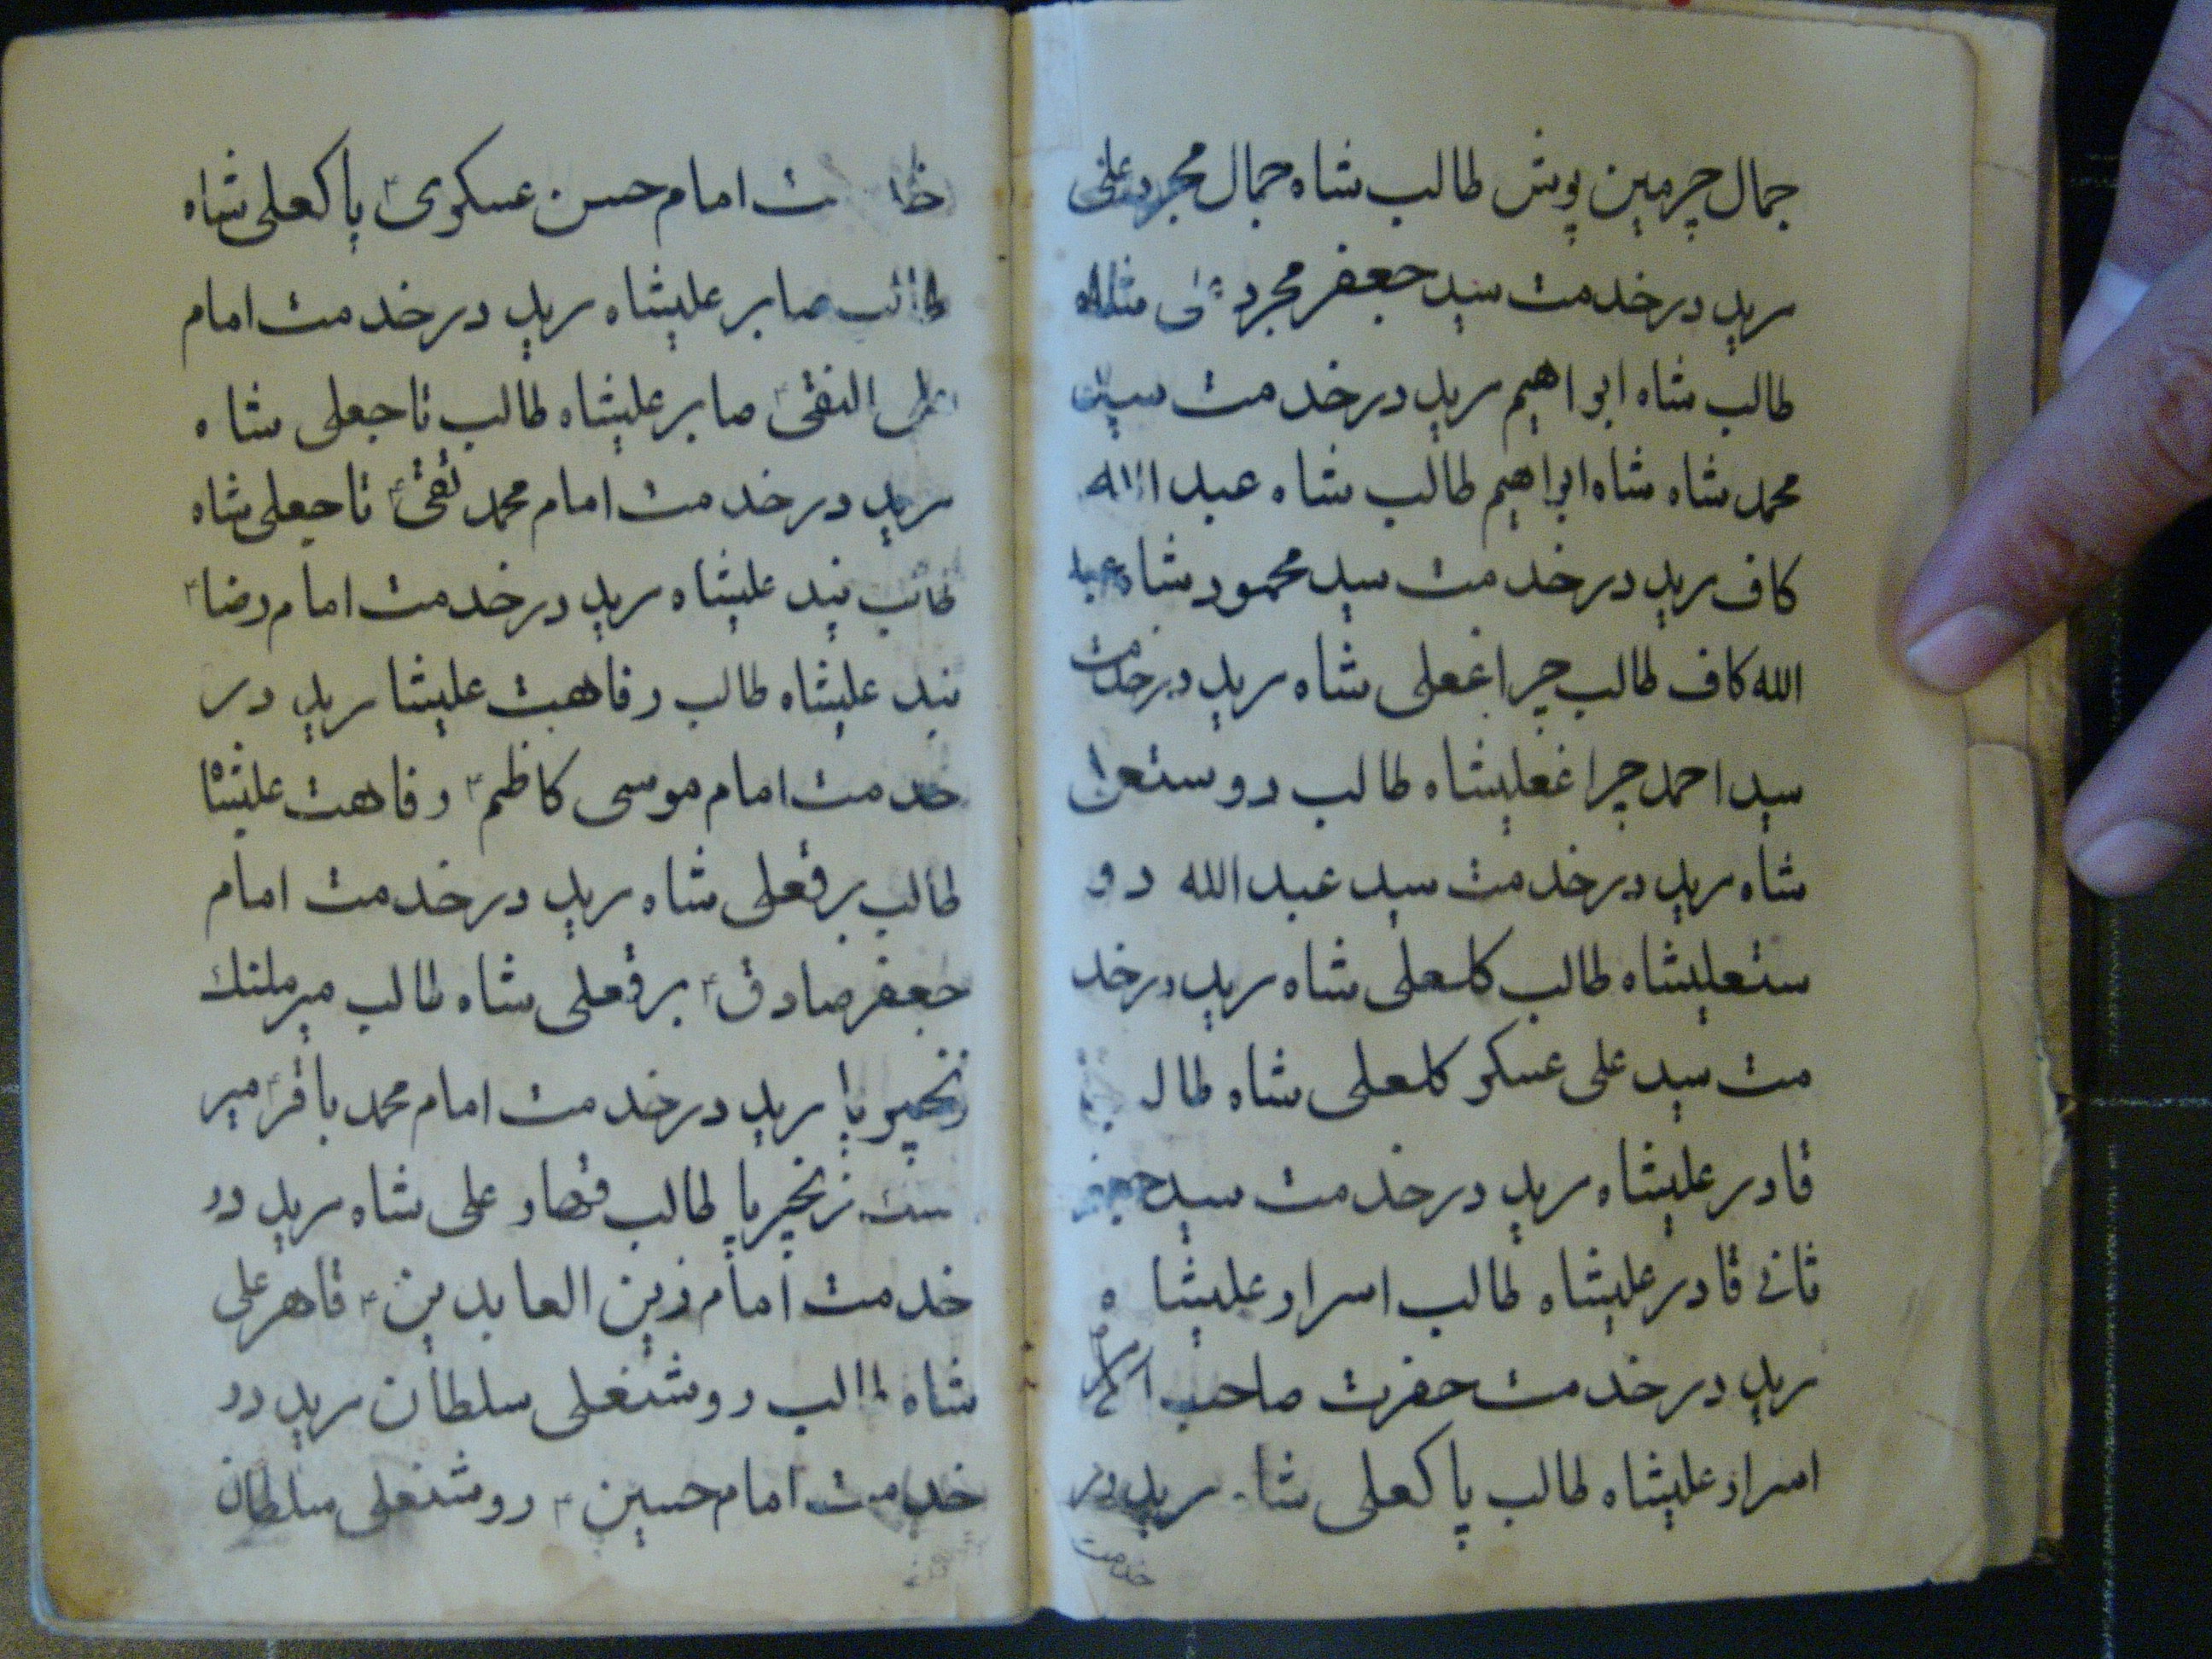 جمال چرمین پوش طالب شاه جمال مجرد علی
رید در خدمت سید جعفر مجرد شاه
طالب شاه ابراهیم رید در خدمت سید
محمد شاه شاه ابراهیم طالب شاه عبد الله
کاف رید در خدمت سید محمود شاه عبد
الله کاف طالب چراغعلی شاه رید در خدمت
سید احمد چراغعلیشاه طالب دوستعلی
شاه رید در خدمت سید عبد الله دو
ستعلیشاه طالب کلبعلی شاه رید در خد
مت سید علی عسکر کلبعلی شاه طالب
قادر علیشاه رید در خدمت سید جعفر
ثانی قادر علیشاه طالب اسرار علیشاه
رید در خدمت حضرت صاحب
اسرار علیشاه طالب پاکعلی شاه رید در
خدمت
خدمت امام حسن عسکری ع پاکعلی شاه
طالب صابر علیشاه رید در خدمت امام
علی النقی ع صابر علیشاه طالب تاجعلی شاه
رید در خدمت امام محمد تقی ع تاجعلی شاه
طالب علیشاه رید در خدمت امام رضا ع
علیشاه طالب رفاهت علیشا رید در
خدمت امام موسی کاظم ع رفاهت علیشاه
طالب برقعلی شاه رید در خدمت امام
جعفر صادق ع برقعلی شاه طالب میر ملنک
زنجیر پا رید در خدمت امام محمد باقر ع میر
زنجیر پا طالب قهار علی شاه رید در
خدمت امام زین العابدین ع قاهر علی
شاه طالب روشنعلی سلطان رید در
خدمت امام حسین ع روشنعلی سلطان